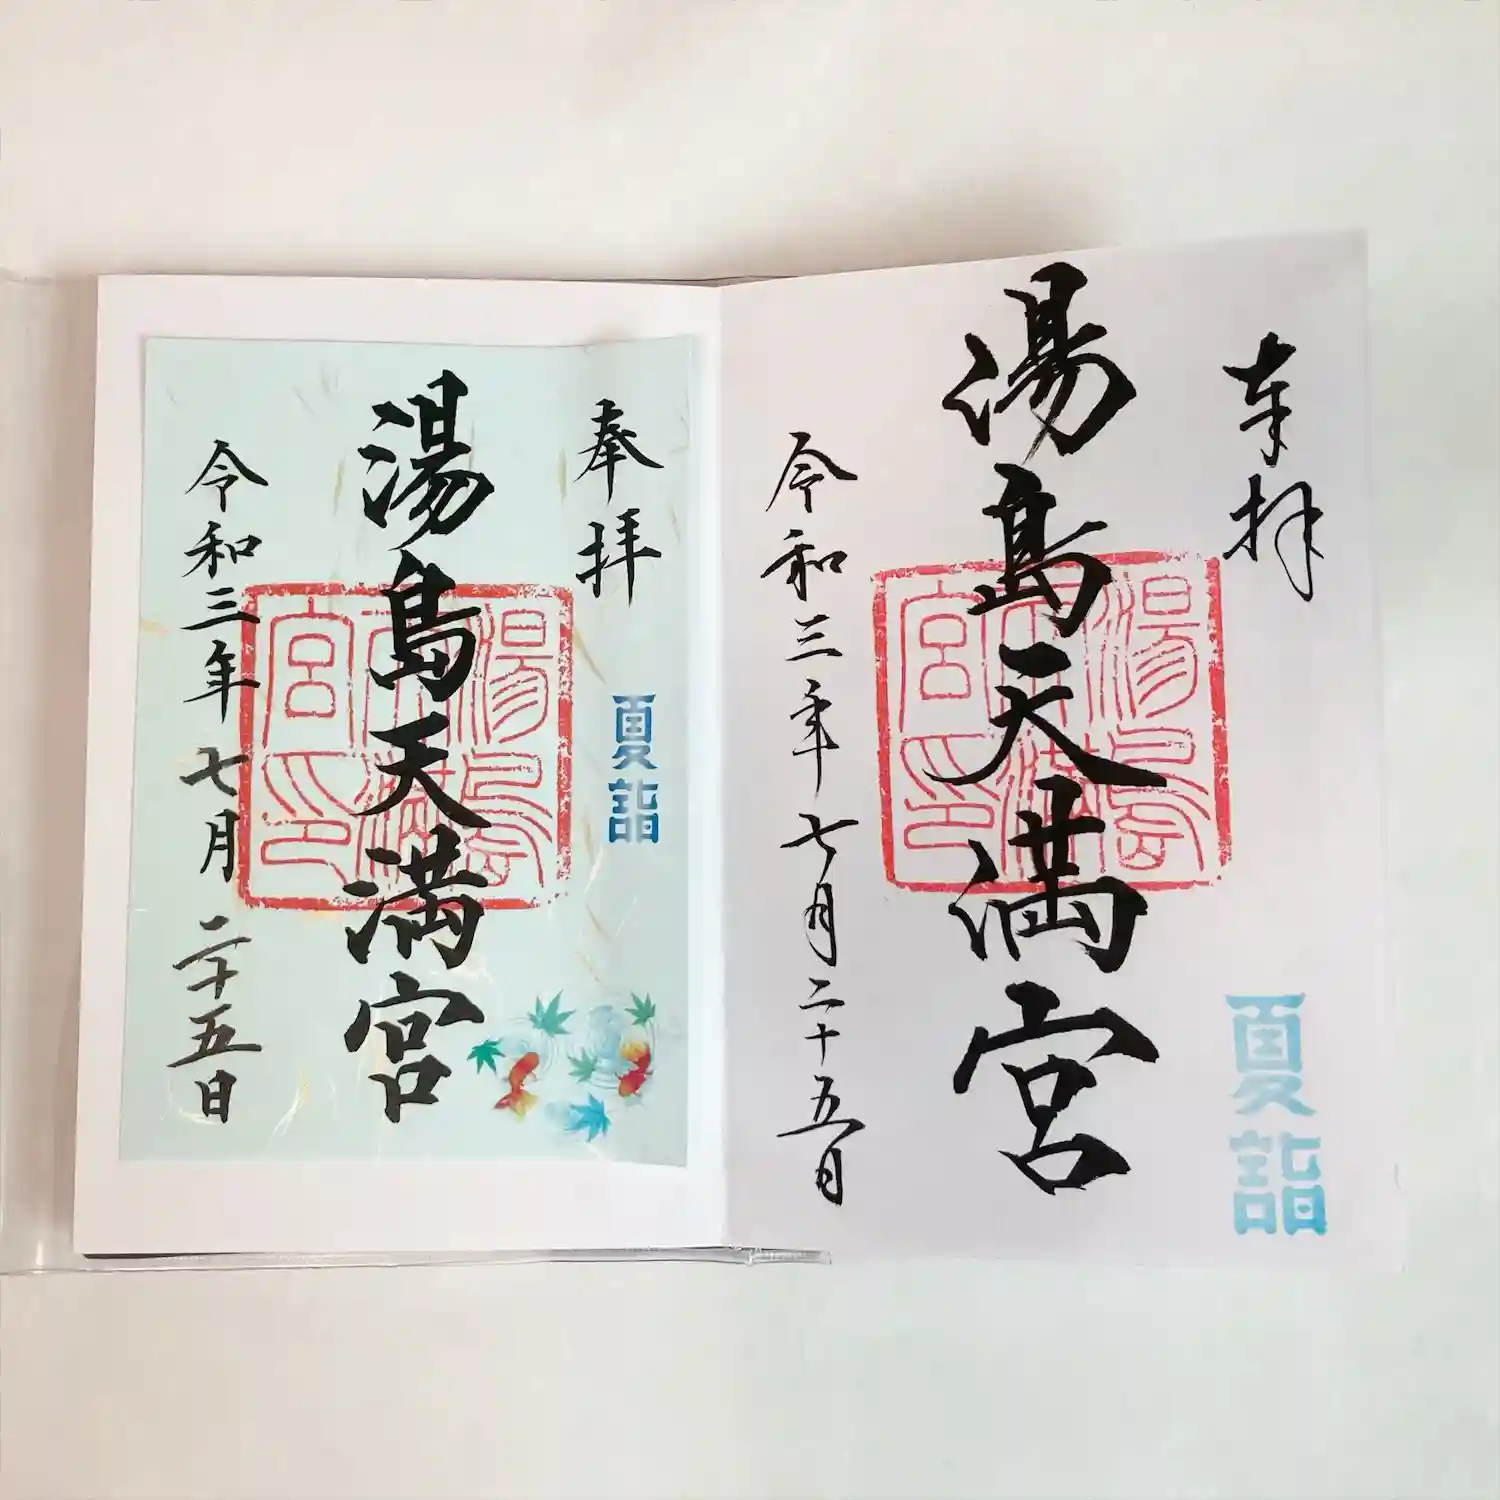 奉拝
夏詣
湯島天満宮
湯島天満宮印
令和三年七月二十五日
奉拝
夏詣
湯島天満宮
湯島天満宮印
令和三年七月二十五日